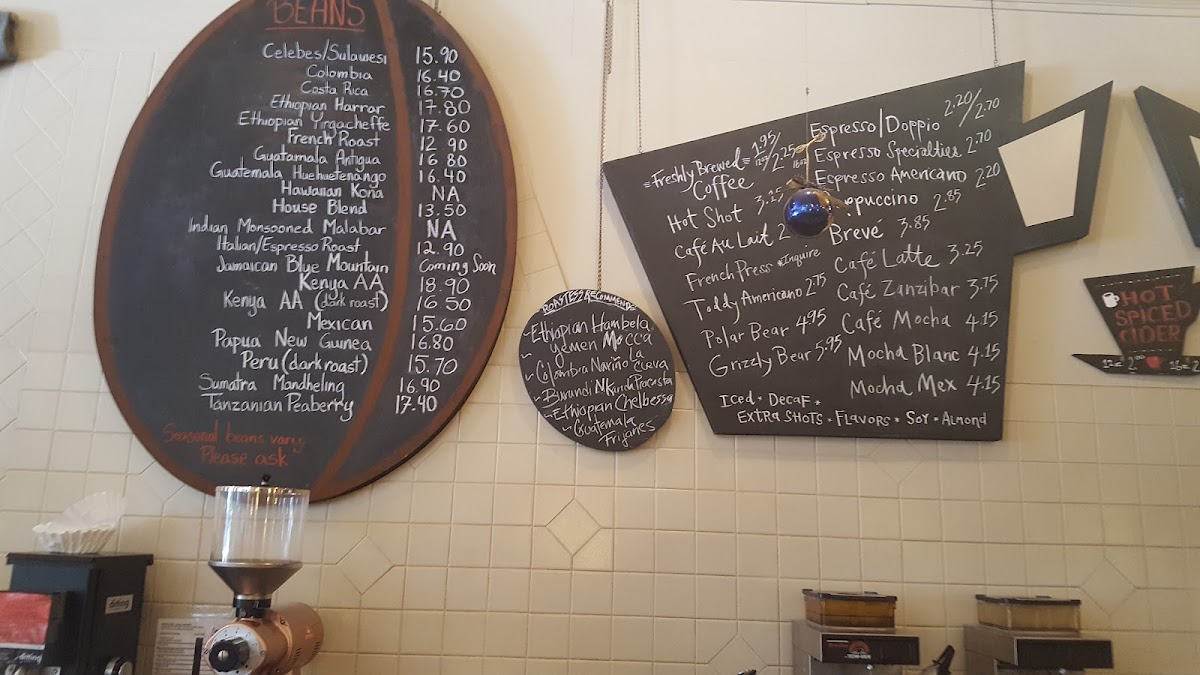 BEANS
Celebes/Sulawesi 15.90
Colombia 16.40
Costa Rica 16.70
Ethiopian Harrar 17.80
Ethiopian Yirgacheffe 17.60
French Roast 12 90
Guatamala Antigua 16 80
Guatemala Huehuetenango 16.40
Hawaiian Kona NA
House Blend 13.50
Indian Monsooned Malabar NA
Italian/Espresso Roast 12.90
Jamaican Blue Mountain Coming Soon
Kenya AA 18.90
Kenya AA (dark roast) 16 50
Mexican 15.60
Papua New Guinea 16.80
Peru (dark roast) 15.70
Sumatra Mandheling 16.90
Tanzanian Peaberry 17.40
Seasonal beans vary
Please ask
ROASTESS RECOMMENDS
Ethiopian Hambela
Yemen Mocca
Colombia Nariño La
Cueva
Burundi
Ethiopian Chelbessa
Guatemala
Frijanes
Freshly Brewed 1.95/2.25
12oz 16oz
Coffee
Hot Shot 3.25
Café Au Lait 2
French Press Inquire
Toddy Americano 2.75
Polar Bear 4.95
Grizzly Bear 5.95
Espresso/Doppio 2.20/2.70
Espresso Specialties 2.70
Espresso Americano 2.20
ppuccino 2.85
Brevé 3.85
Café Latte 3.25
Café Zanzibar 3.75
Café Mocha 4.15
Mocha Blanc 4.15
Mocha Mex 4.15
Iced • Decaf •
Extra Shots • Flavors • Soy • Almond
HOT
SPICED
CIDER
12oz 2.00 16oz 2
ditting
ditting